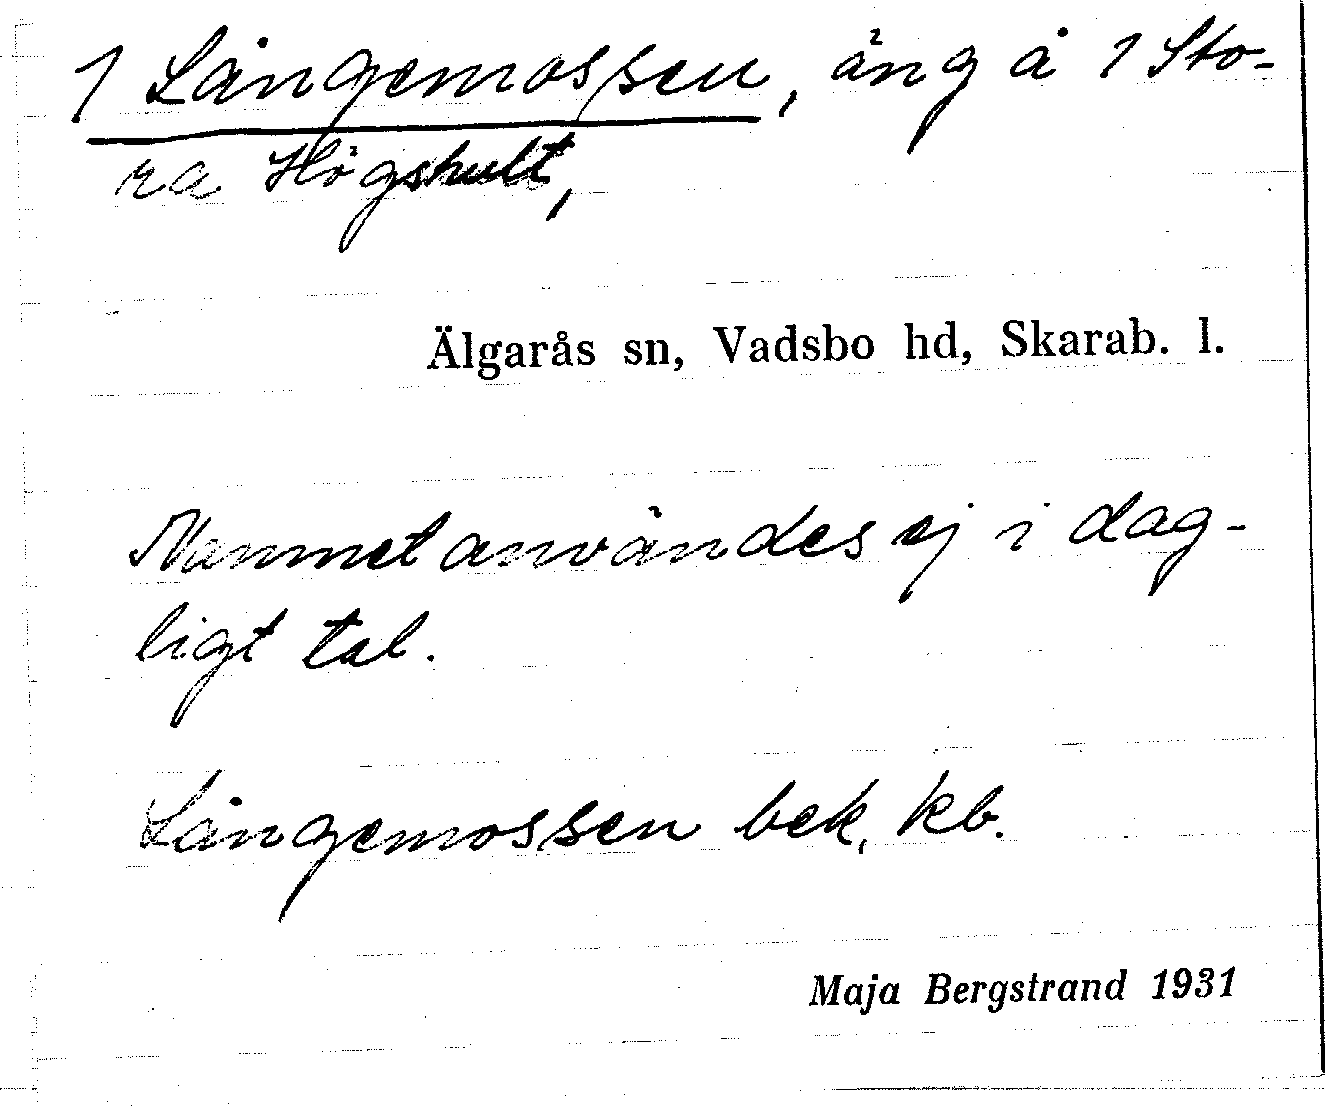 1 Långemossen, äng å 1 Sto-
ra Högshult,
Älgarås sn, Vadsbo hd, Skarab. l.
Namnet användes ej i dag-
ligt tal.
Långemossen bek. kb.
Maja Bergstrand 1931